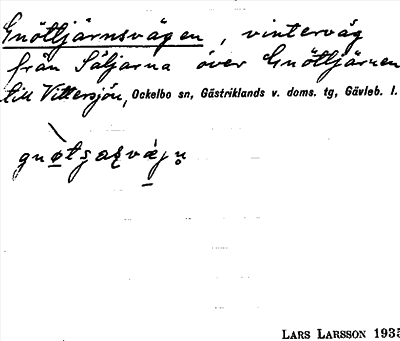 Gnöttjärnsvägen, vinterväg
från Säljarna över Gnöttjärnen
till Vittersjön, Ockelbo sn, Gästriklands v. doms. tg, Gävleb. l.
LARS LARSSON 1935